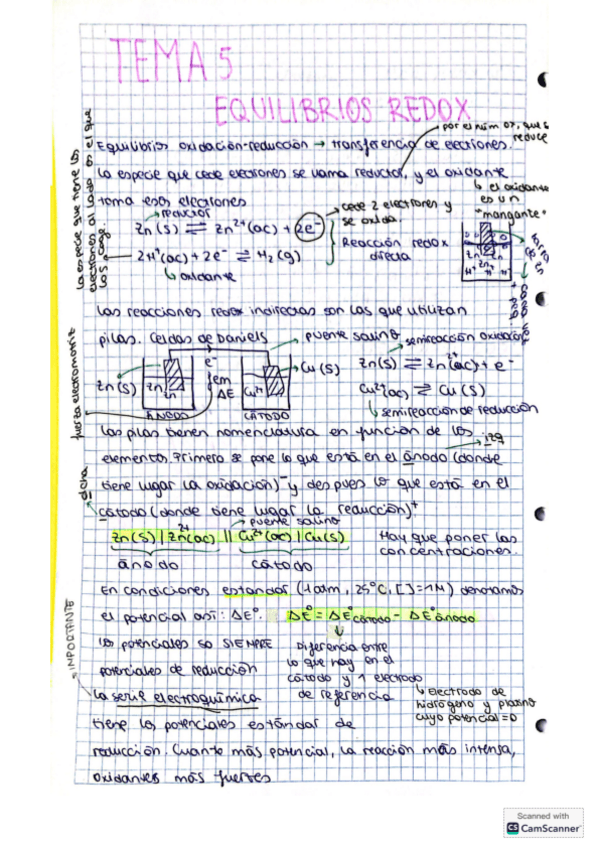 TEMA 5
EQUILIBRIOS REDOX
por el núm ox, que se reduce
Equilibrios oxidación-reducción → transferencia de electrones.
La especie que cede electrones se llama reductor, y el oxidante
toma esos electrones
↳ el oxidante es un "mangante"
la especie que tiene los electrones al lado es el que los
reductor
Zn(s) ⇌ Zn²⁺(ac) + 2e⁻
→ cede 2 electrones y se oxida.
2H⁺(ac) + 2e⁻ ⇌ H₂(g)
↳ oxidante
Reacción redox directa
Zn
Zn
H⁺ H⁺ H⁺
Las reacciones redox indirectas son las que utilizan
pilas. Celdas de Daniels
puente salino
semireacción oxidación
Zn(s)
Zn
e⁻
fem
ΔE
Cu²⁺
Cu(s)
Zn(s) ⇌ Zn²⁺(ac) + e⁻
Cu²⁺(ac) ⇌ Cu(s)
↳ semireacción de reducción
ÁNODO
CÁTODO
fuerza electromotriz
Las pilas tienen nomenclatura en función de los
→ izq
elementos. Primero se pone lo que está en el ánodo (donde
tiene lugar la oxidación)⁻ y despues lo que está en el
cátodo (donde tiene lugar la reducción)⁺
dcha
puente salino
Zn(s) | Zn²⁺(ac) || Cu²⁺(ac) | Cu(s)
ánodo
cátodo
Hay que poner las concentraciones.
En condiciones estandar (1 atm, 25°C, [ ]=1M) denotamos
el potencial así: ΔE°. ΔE° = ΔE°cátodo - ΔE°ánodo
IMPORTANTE
los potenciales so SIEMPRE
potenciales de reducción
Diferencia entre
lo que hay en el
cátodo y 1 electrodo
de referencia
↳ Electrodo de
hidrógeno y platino
cuyo potencial = 0
La serie electroquímica
tiene los potenciales estándar de
reducción. Cuanto más potencial, la reacción más intensa,
oxidantes más fuertes
Scanned with
CS CamScanner